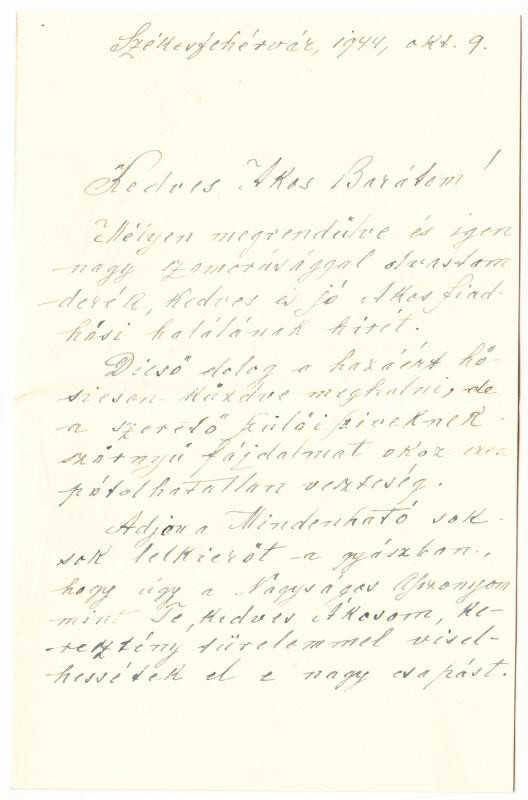 Székesfehérvár, 1944, okt. 9.
Kedves Ákos Barátom!
Mélyen megrendülve és igen
nagy szomorúsággal olvastam
derék, kedves és jó Ákos fiad-
hősi halálának hírét.
Dicső dolog a hazáért hő-
siesen küzdve meghalni, de
a szerető szülői sziveknek
szörnyű fájdalmat okoz ezen
pótolhatatlan veszteség.
Adjon a Mindenható sok-
sok lelkierőt a gyászban,
hogy úgy a Nagyságos Asszonyom
mint Te, kedves Ákosom, ke-
resztény türelemmel visel-
hessétek el e nagy csapást.